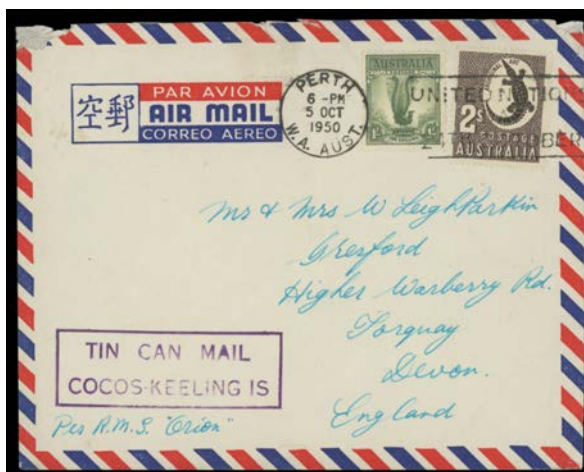 空郵
PAR AVION
AIR MAIL
CORREO AEREO
PERTH
6 -PM
5 OCT
1950
W.A. AUST.
AUSTRALIA
UNITED NATION
2S
POSTAGE
AUSTRALIA
24TH BER
Mr & Mrs W Leigh Parkin
Gresford
Higher Warberry Rd.
Torquay
Devon.
England
TIN CAN MAIL
COCOS-KEELING IS
Per R.M.S. "Orion"